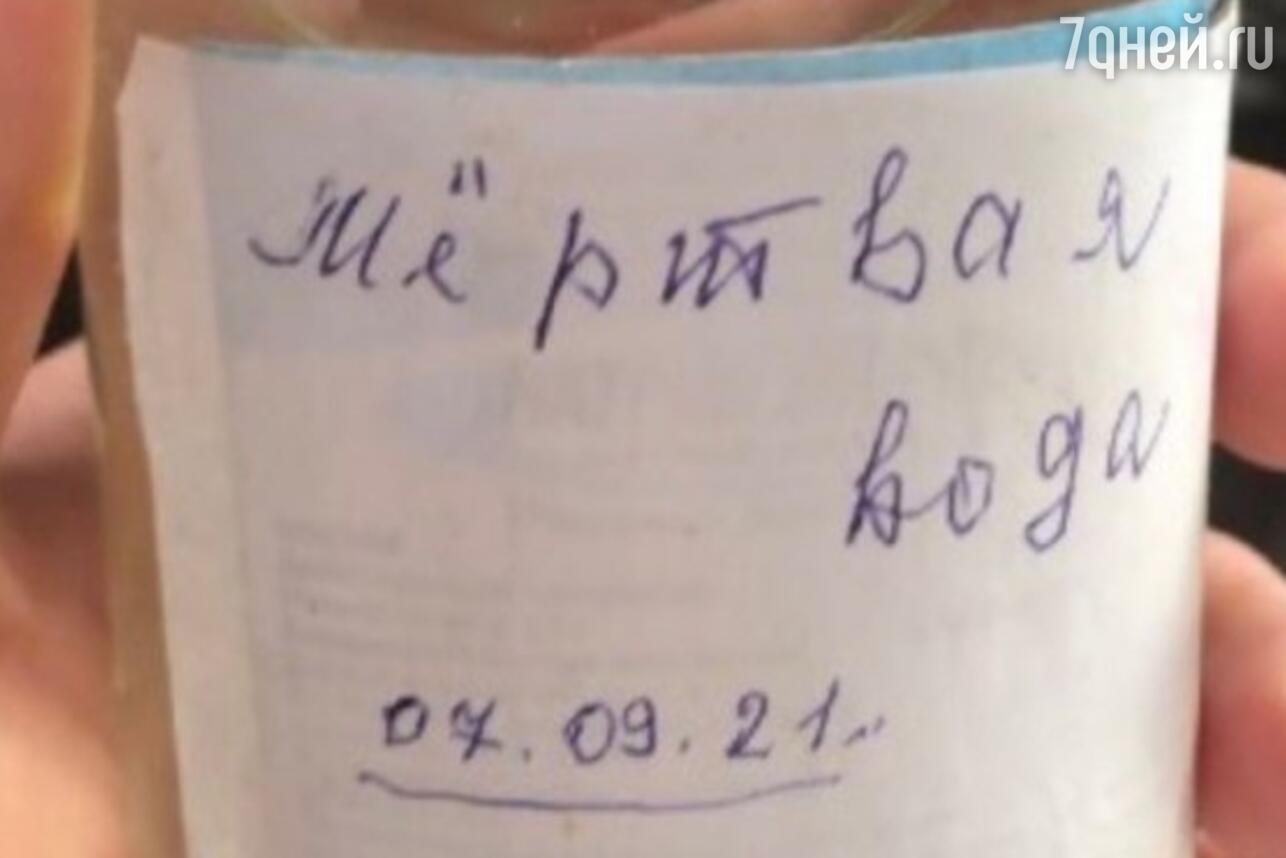 7дней.ru
Мёртвая
вода
07.09.21.